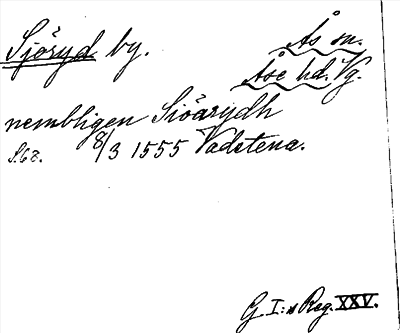 Sjöryd by.
Ås sn.
Åse hd. Vg.
nembligen Siöarydh
S.68. 8/3 1555 Vadstena.
G. I:s Reg. XXV.